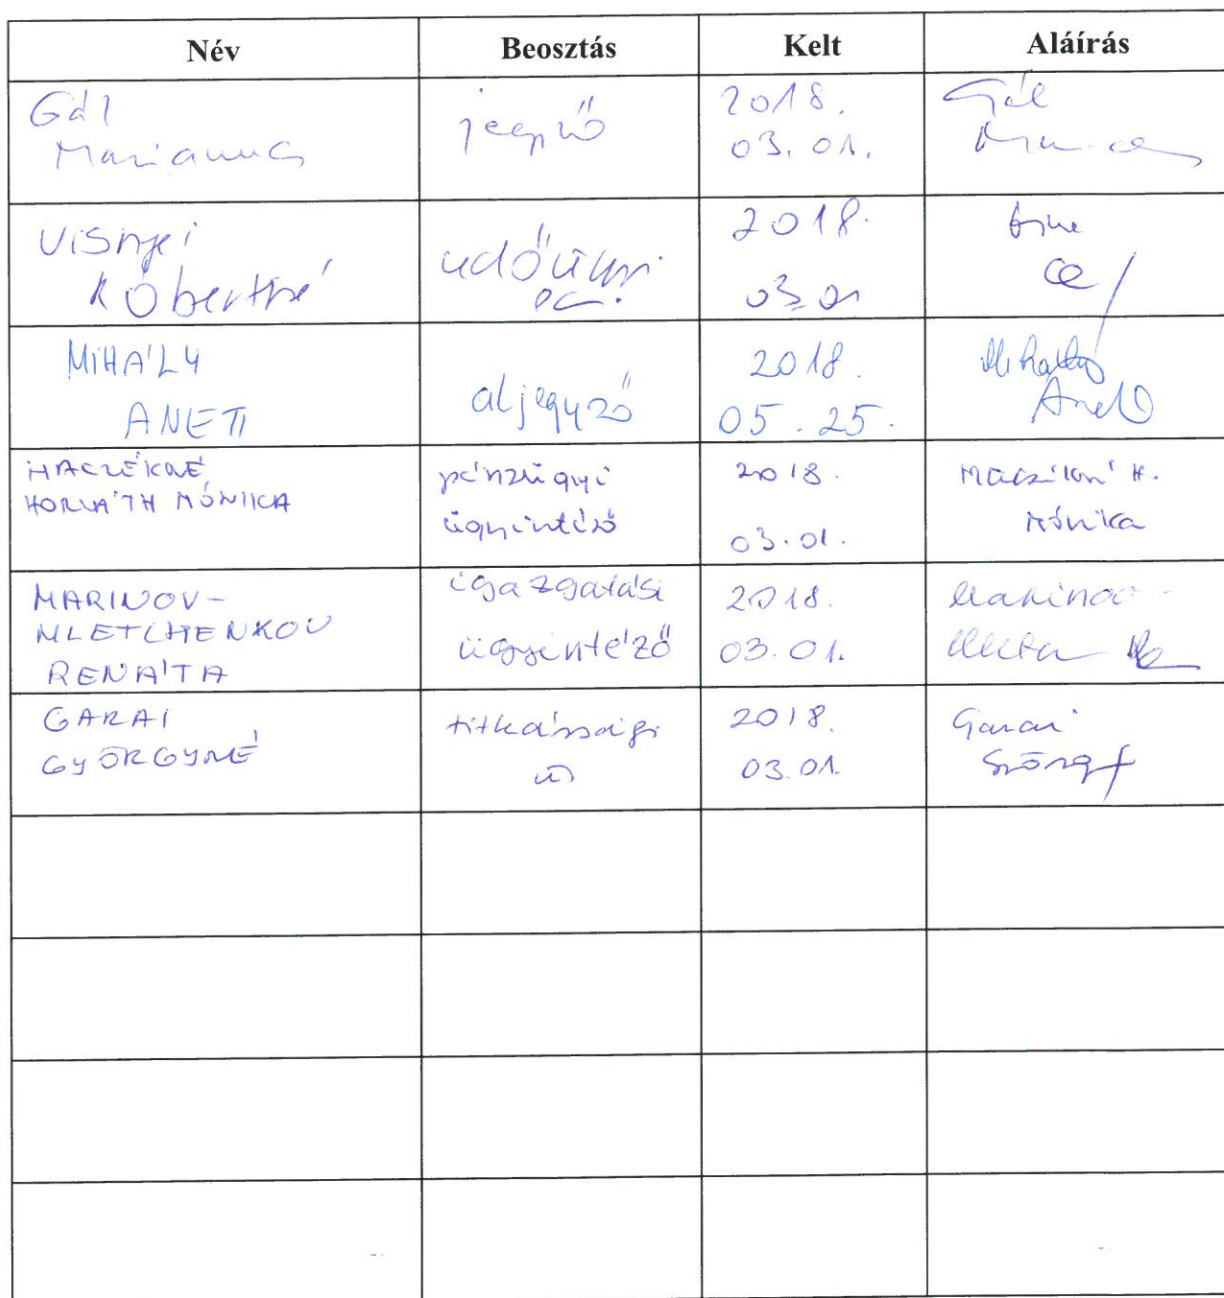 Név Beosztás Kelt Aláírás
Gál
Marianna
jegyző
2018.
03.01.
Gál
Visnyei
Róbertné
adóügyi
2018.
03.01
MIHÁLY
ANETT
aljegyző
2018.
05.25.
Mihály
Anett
MACZÉKNÉ
HORVÁTH MÓNIKA
pénzügyi
ügyintéző
2018.
03.01.
Maczékné H.
Mónika
MARINOV-
MLETCHENKOV
RENÁTA
igazgatási
ügyintéző
2018.
03.01.
Marinov-
GARAI
GYÖRGYNÉ
titkársági
üi
2018.
03.01.
Garai